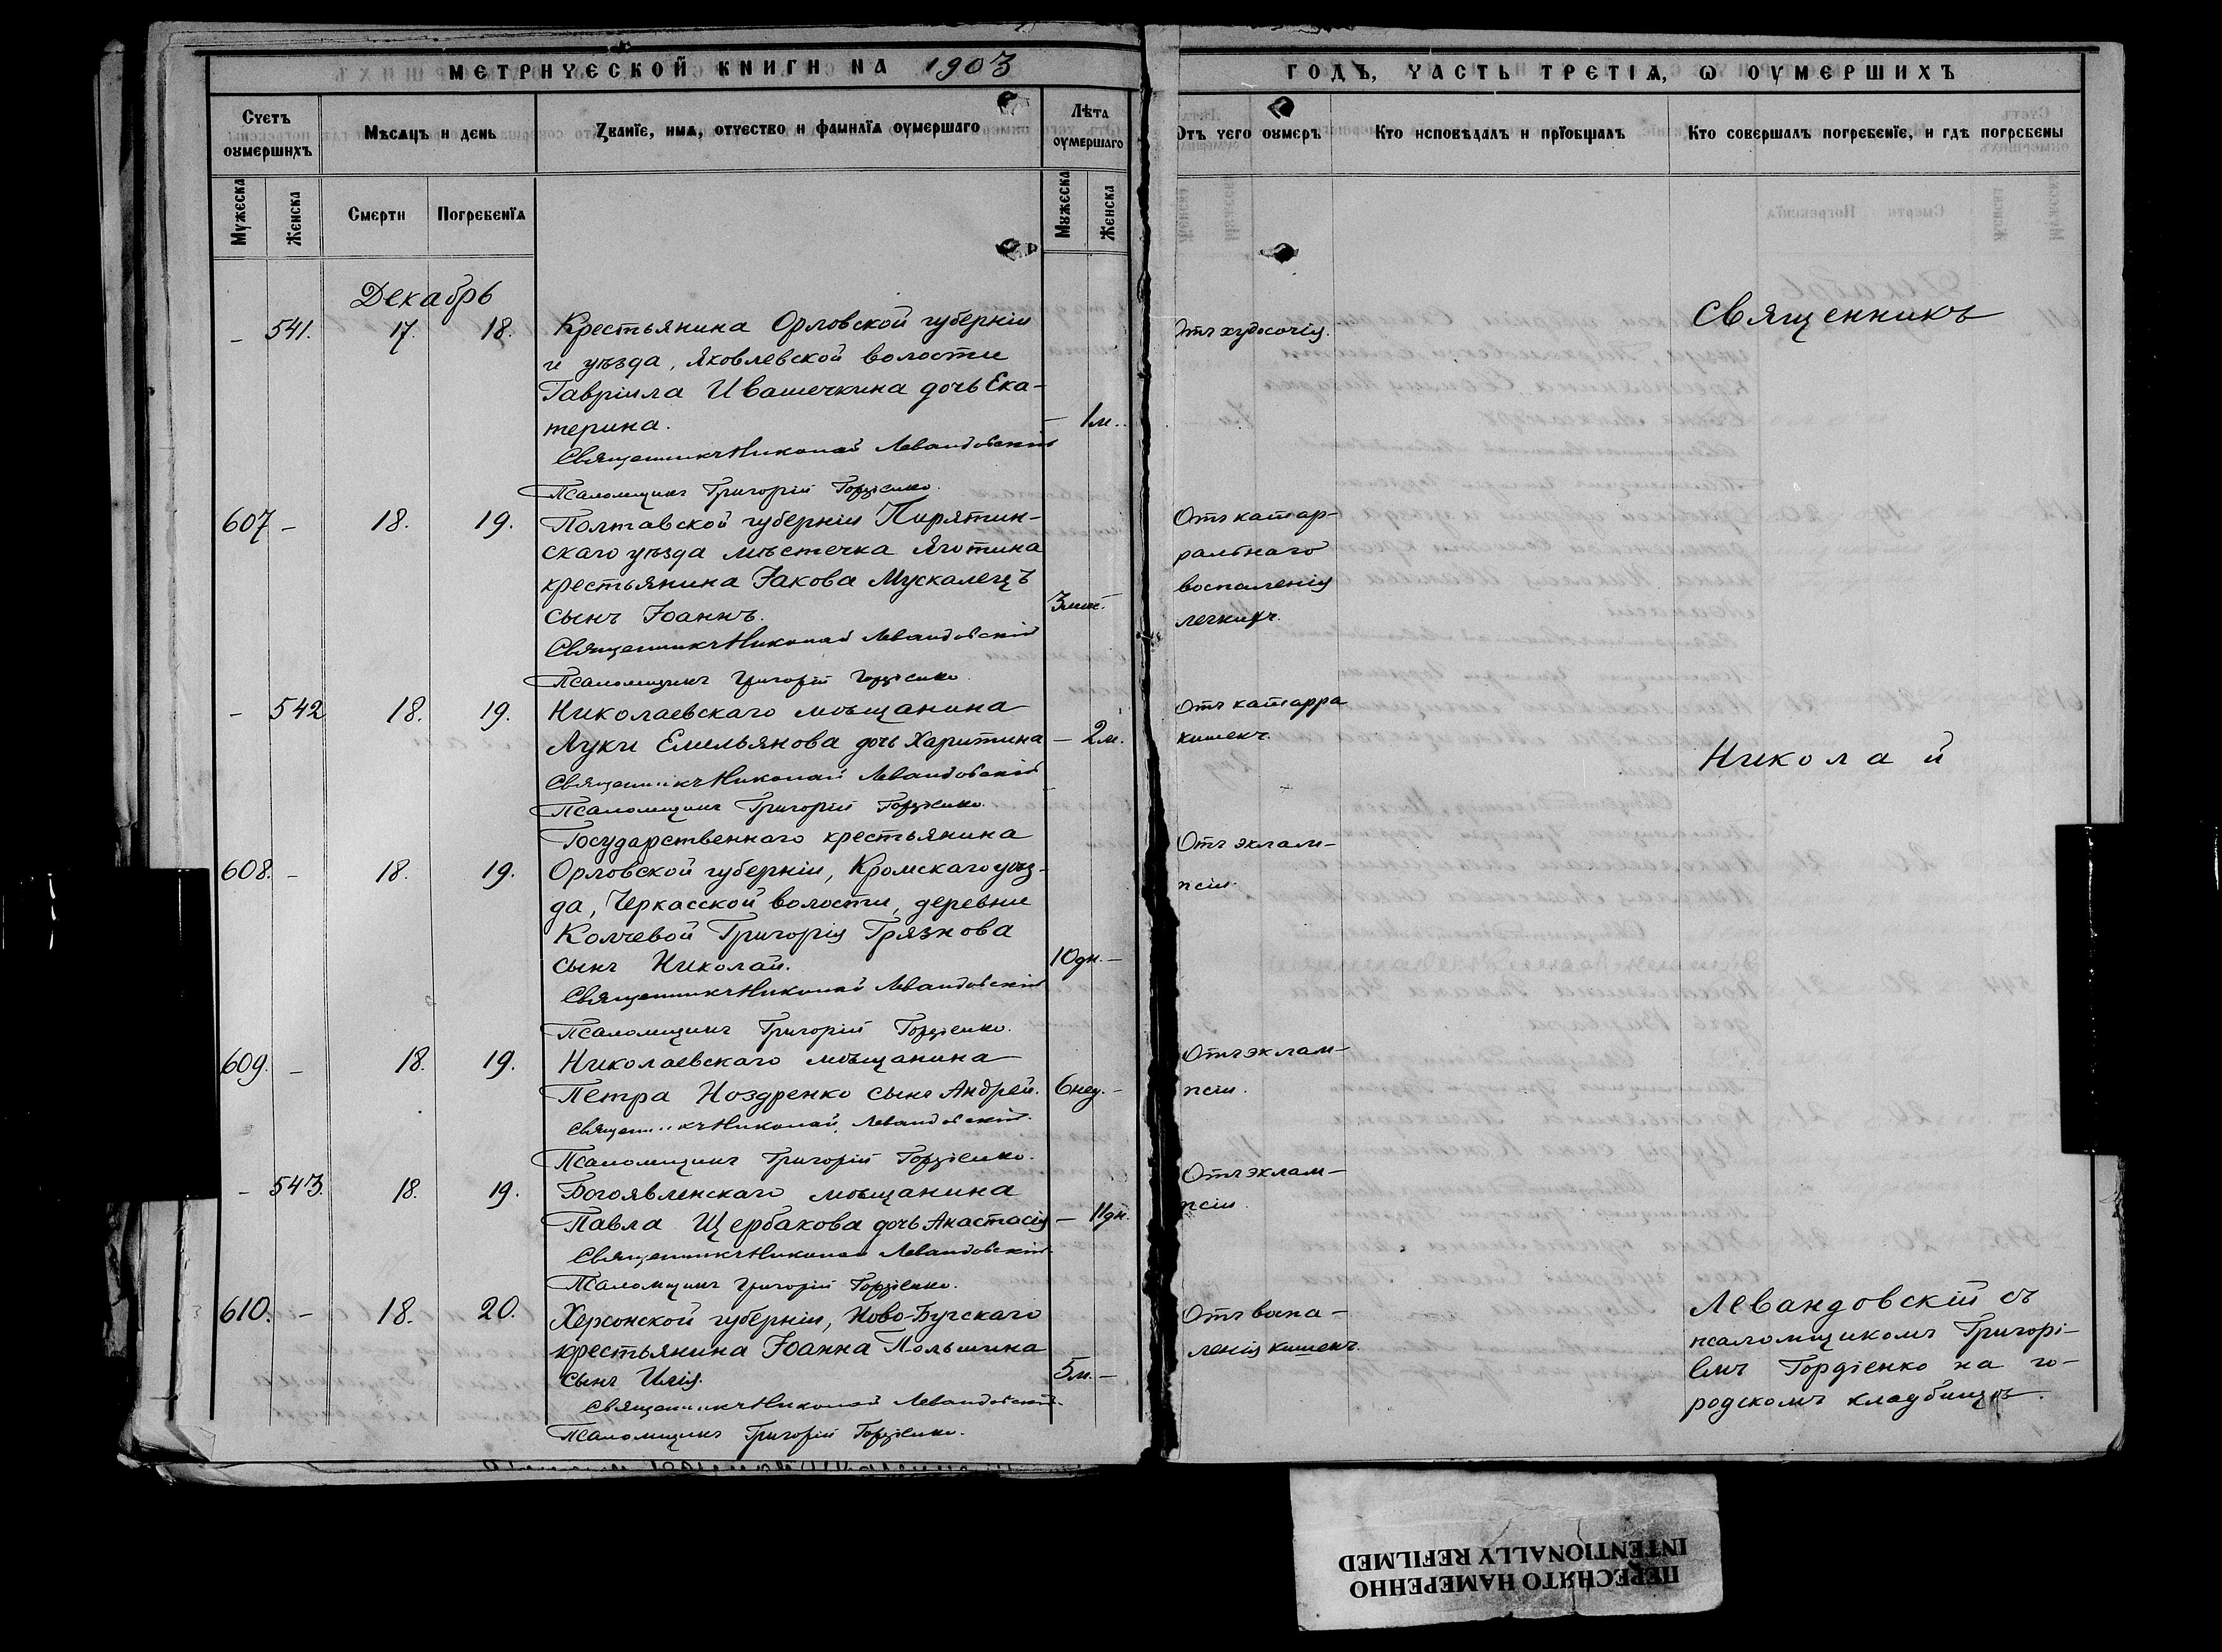 МЕТРИЧЕСКОЙ КНИГИ НА 1903
Счетъ оумершихъ
Мѣсяцъ и день
Званїе, имя, отчество и фамилїя оумершаго
Лѣта оумершаго
Мужеска
Женска
Смерти
Погребенїя
Мужеска
Женска
Декабрь
– 541. 17. 18. Крестьянина Орловской губерніи
и уѣзда, Яковлевской волости
Гавріила Ивашечкина дочь Ека-
терина. – 1 м.
Священникъ Николай Левандовскій
Псаломщикъ Григорій Гордіенко.
607 – 18. 19. Полтавской губерніи Пирятин-
скаго уѣзда мѣстечка Яготина
крестьянина Іакова Мускалецъ
сынъ Іоаннъ.
Священникъ Николай Левандовскій
Псаломщикъ Григорій Гордіенко
– 542 18. 19. Николаевскаго мѣщанина
Луки Емельянова дочь Харитина – 2 м.
Священникъ Николай Левандовскій
Псаломщикъ Григорій Гордіенко.
Государственнаго крестьянина
608. – 18. 19. Орловской губерніи, Кромскаго уѣз-
да, Черкасской волости, деревни
Колчевой Григорія Грязнова
сынъ Николай. 10 дн. –
Священникъ Николай Левандовскій
Псаломщикъ Григорій Гордіенко.
609. – 18. 19. Николаевскаго мѣщанина
Петра Ноздренко сынъ Андрей. 6 нед. –
Священникъ Николай Левандовскій.
Псаломщикъ Григорій Гордіенко.
– 543. 18. 19. Богоявленскаго мѣщанина
Павла Щербакова дочь Анастасія – 11 дн.
Священникъ Николай Левандовскій
Псаломщикъ Григорій Гордіенко.
610. – 18. 20. Херсонской губерніи, Ново-Бугскаго
крестьянина Іоанна Польшина
сынъ Илія. 5 м. –
Священникъ Николай Левандовскій.
Псаломщикъ Григорій Гордіенко.
ГОДЪ, ЧАСТЬ ТРЕТІЯ, Ѡ ОУМЕРШИХЪ
Отъ чего оумеръ
Кто исповѣдалъ и прїобщалъ
Кто совершалъ погребенїе, и гдѣ погребены
Отъ худосочія.
Священникъ
Отъ катар-
ральнаго
воспаленія
легкихъ.
Отъ катарра
кишекъ.
Николай
Отъ эклам-
псіи.
Отъ эклам-
псіи.
Отъ эклам-
псіи.
Отъ воспа-
ленія кишекъ.
Левандовскій съ
псаломщикомъ Григорі-
емъ Гордіенко на го-
родскомъ кладбищѣ.
ПЕРЕСНЯТО НАМЕРЕННО
INTENTIONALLY REFILMED